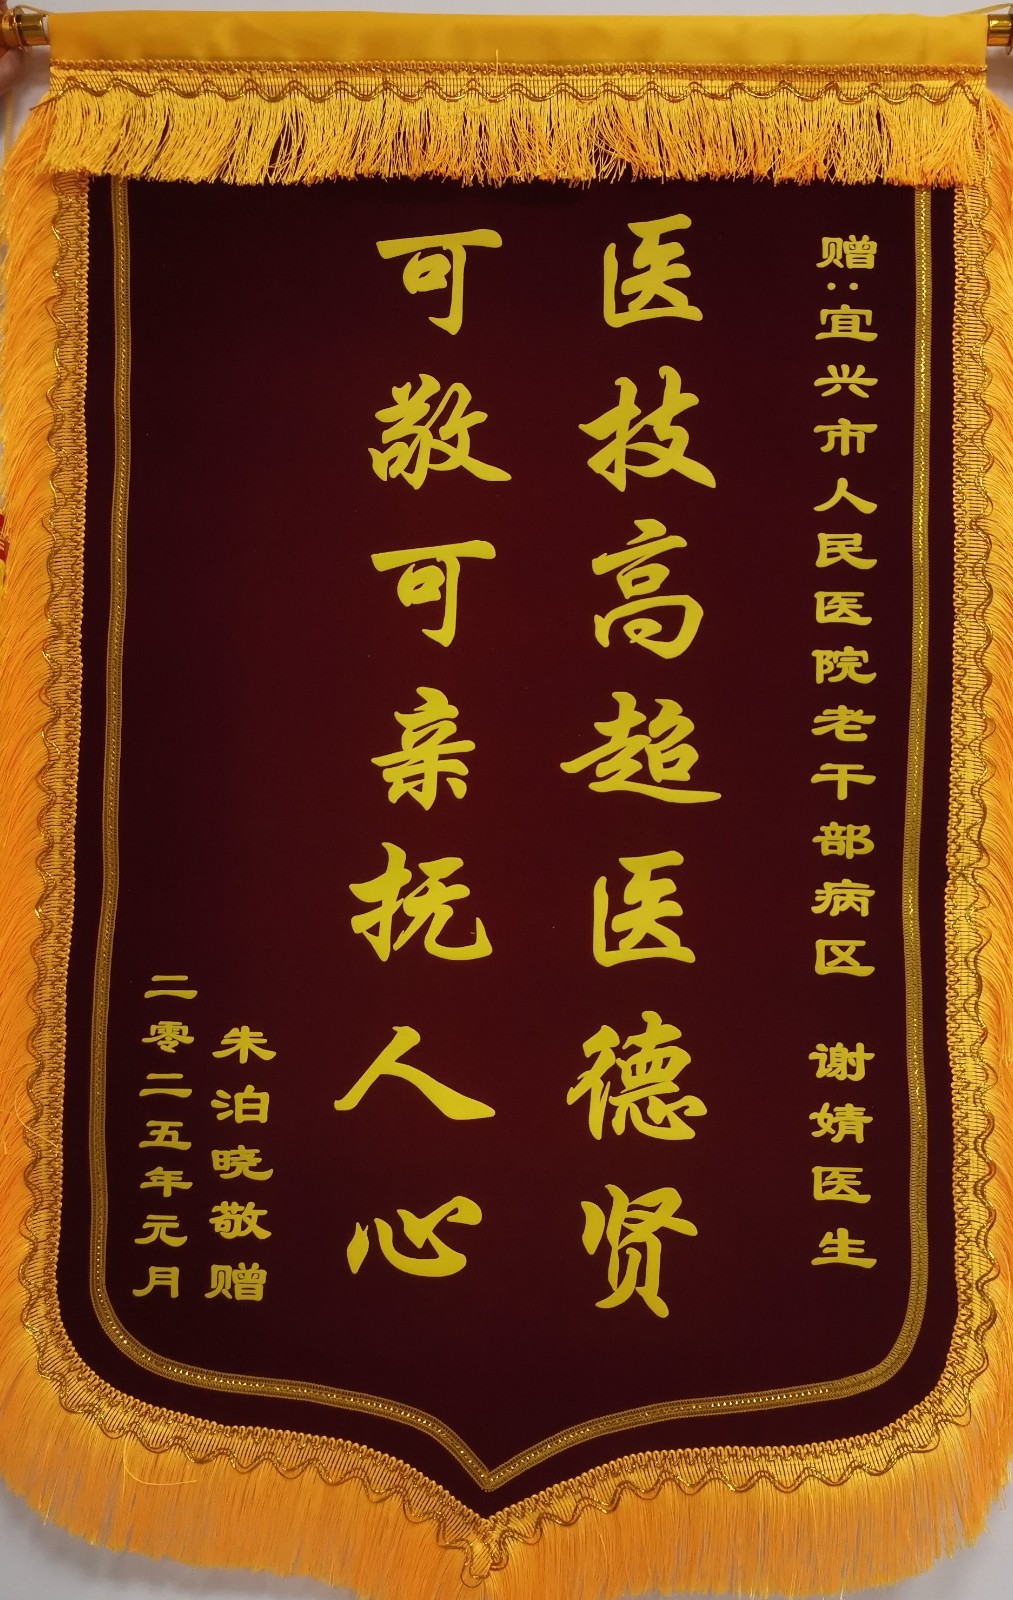 赠:宜兴市人民医院老干部病区 谢婧医生
医技高超医德贤
可敬可亲抚人心
朱泊晓敬赠
二零二五年元月